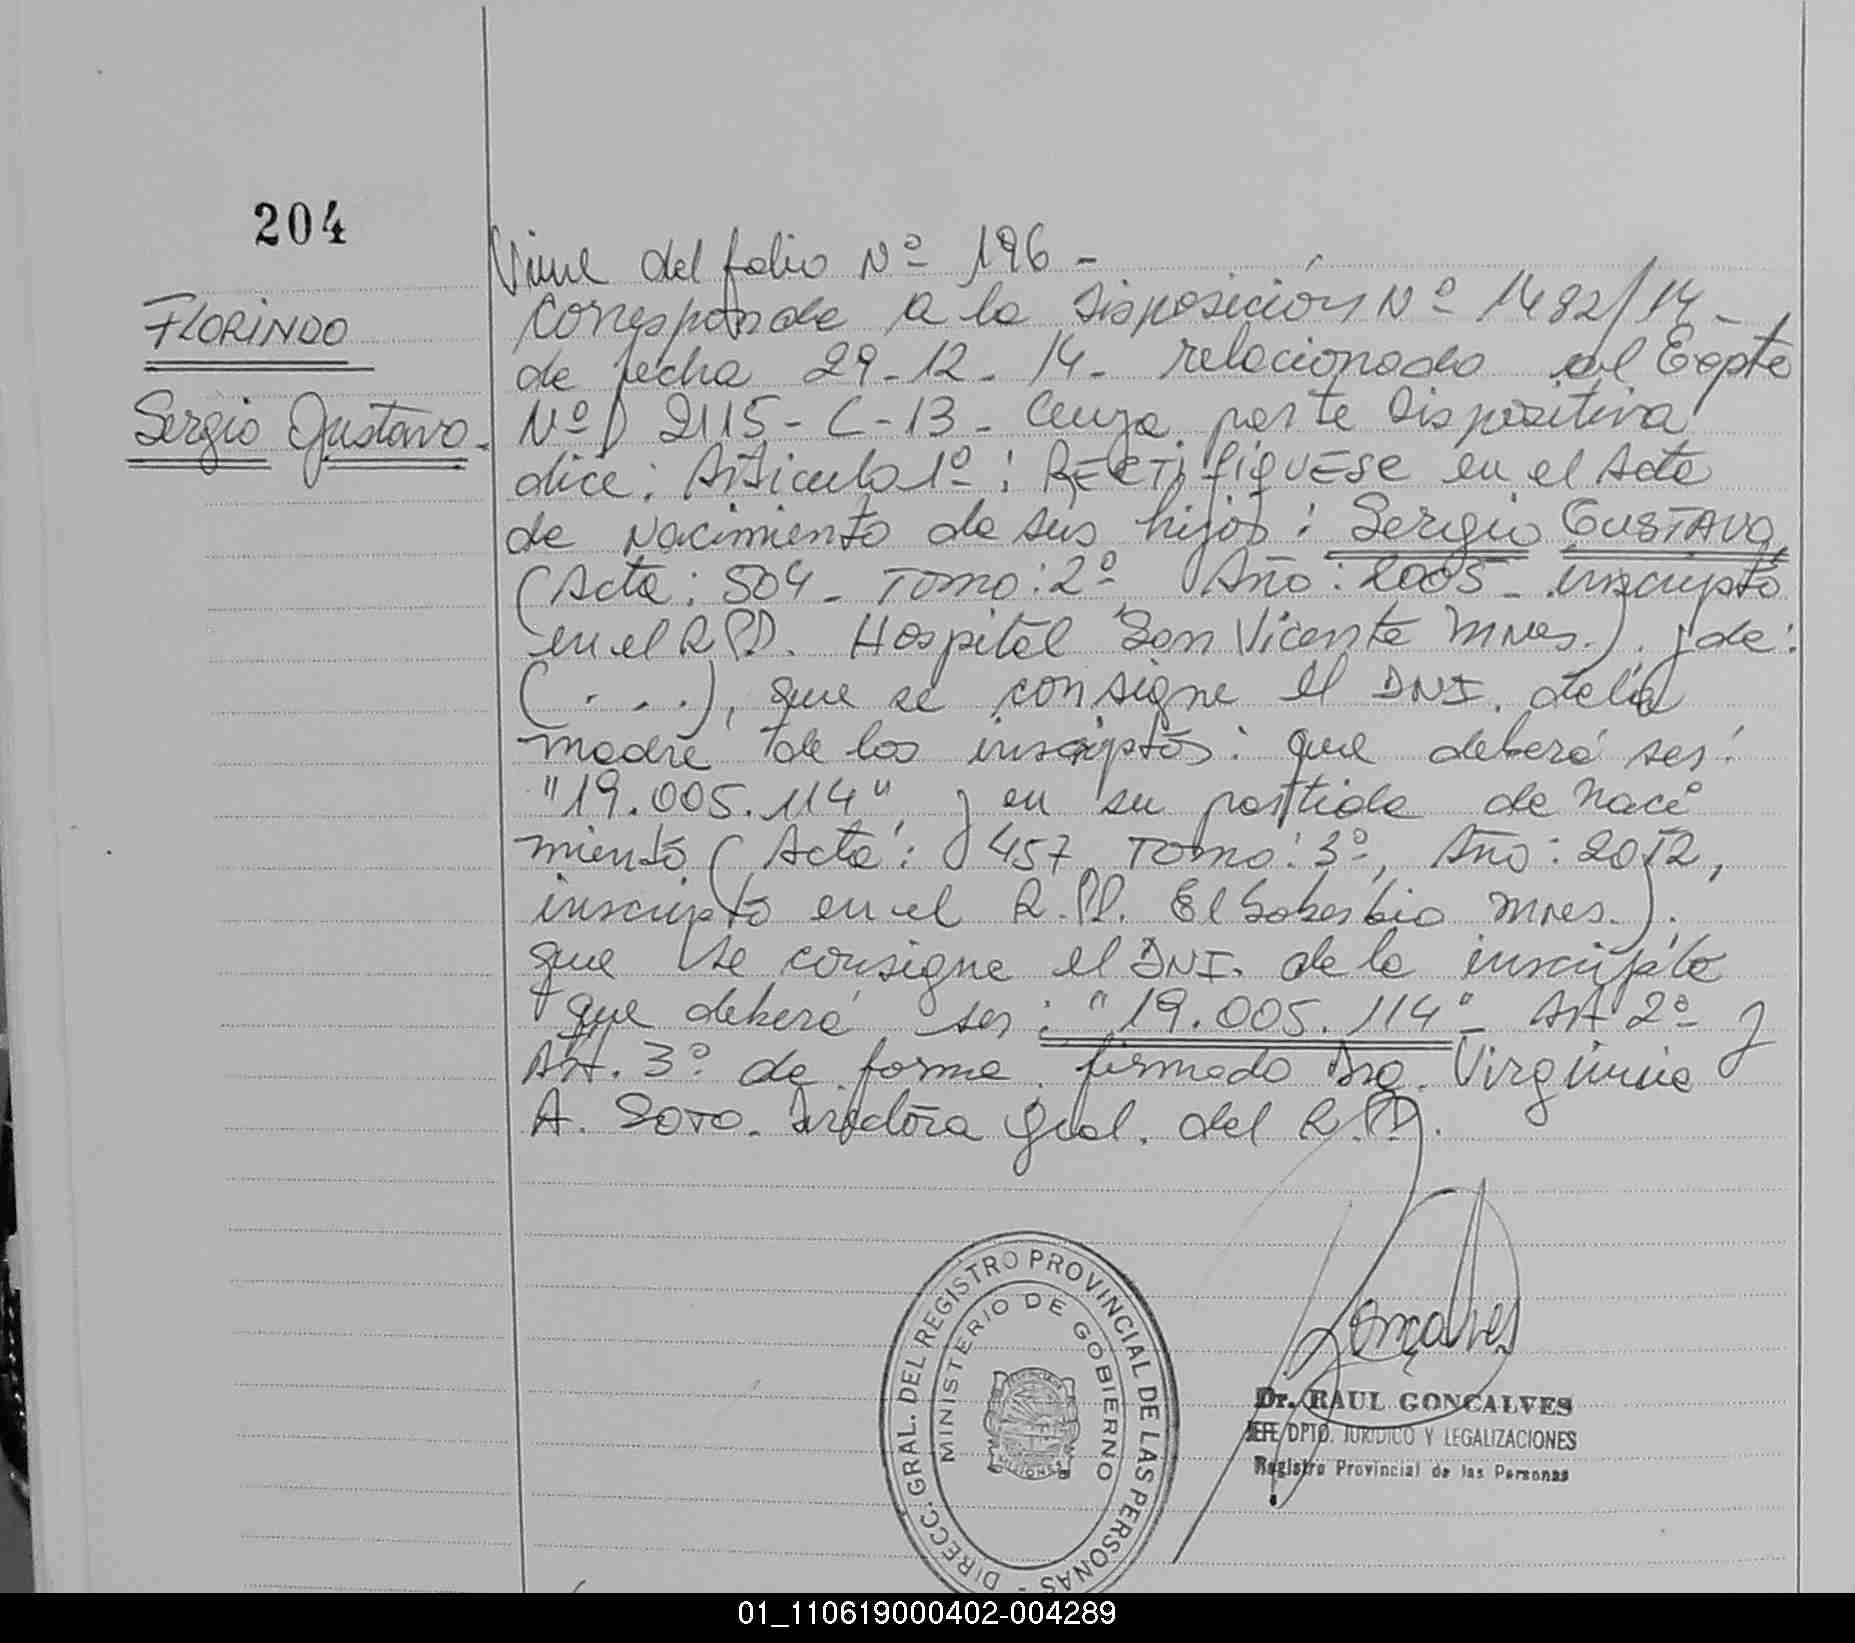 204
FLORINDO
Sergio Gustavo.
Viene del folio Nº 196 -
Corresponde a la Disposición Nº 1482/14 -
de fecha 29-12-14- relacionado al Expte
Nº 2115-C-13- Cuya parte Dispositiva
dice: Articulo 1º: RECTIFIQUESE en el Acta
de Nacimiento de sus hijos: Sergio GUSTAVO
(Acta: 504 - Tomo: 2º Año: 2005 - inscripto
en el R.P.P. Hospital San Vicente Mnes.) y de:
(. . .), que se consigne el DNI. de la
madre de los inscriptos: que deberá ser:
"19.005.114" y en su partida de naci
miento (Acta: 457, Tomo: 3º, Año: 2012,
inscripto en el R.P.P. El Soberbio Mnes.).
que se consigne el DNI. de la inscripta
que deberá ser: "19.005.114" - Art 2º y
Art. 3º de forma. firmado Virginia
A. SOTO. Directora Gral. del R.P.P.
DIRECC. GRAL. DEL REGISTRO PROVINCIAL DE LAS PERSONAS -
MINISTERIO DE GOBIERNO
MISIONES
Gonçalves
Dr. RAUL GONCALVES
JEFE DPTO. JURIDICO Y LEGALIZACIONES
Registro Provincial de las Personas
01_110619000402-004289